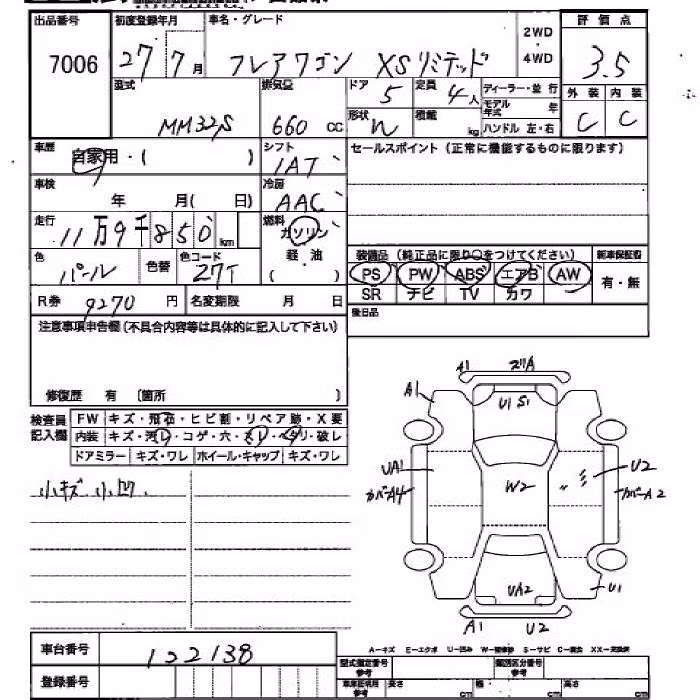 出品番号 初度登録年月 車名・グレード 評価点
7006 27 7月 フレアワゴン XSリミテッド 2WD 4WD 3.5
型式 排気量 ドア 定員 ディーラー・並行 外装 内装
MM32S 660 cc 5 4人 モデル年式 年 C C
形状 N 積載 kg ハンドル 左・右
車歴 自家用・( ) シフト セールスポイント (正常に機能するものに限ります)
IAT
車検 年 月( 日) 冷房 AAC
走行 11万9千850 km 燃料 ガソリン 軽・油 ( )
色 パール 色替 色コード 27T
装備品 (純正品に限り○をつけてください) 新車保証書
PS PW ABS エアB AW 有・無
SR ナビ TV カワ
R券 9270円 名変期限 月 日 後日品
注意事項申告欄(不具合内容等は具体的に記入して下さい)
修復歴 有 〔箇所 〕
検査員記入欄 FW キズ・飛石・ヒビ割・リペア跡・X要
内装 キズ・汚レ・コゲ・穴・スレ・ヘタリ・破レ
ドアミラー キズ・ワレ ホイール・キャップ キズ・ワレ
小キズ 小凹
A1
A1 U1 S1
UA1 W2 U2
カバーA4 カバーA2
UA2 U1
A1 U2
車台番号 122138
A-キズ E-エクボ U-凹み W-補修跡 S-サビ C-腐食 XX-交換済
登録番号
型式指定番号 参考 類別区分番号 参考
車庫証明用 参考 長さ cm 幅 cm 高さ cm